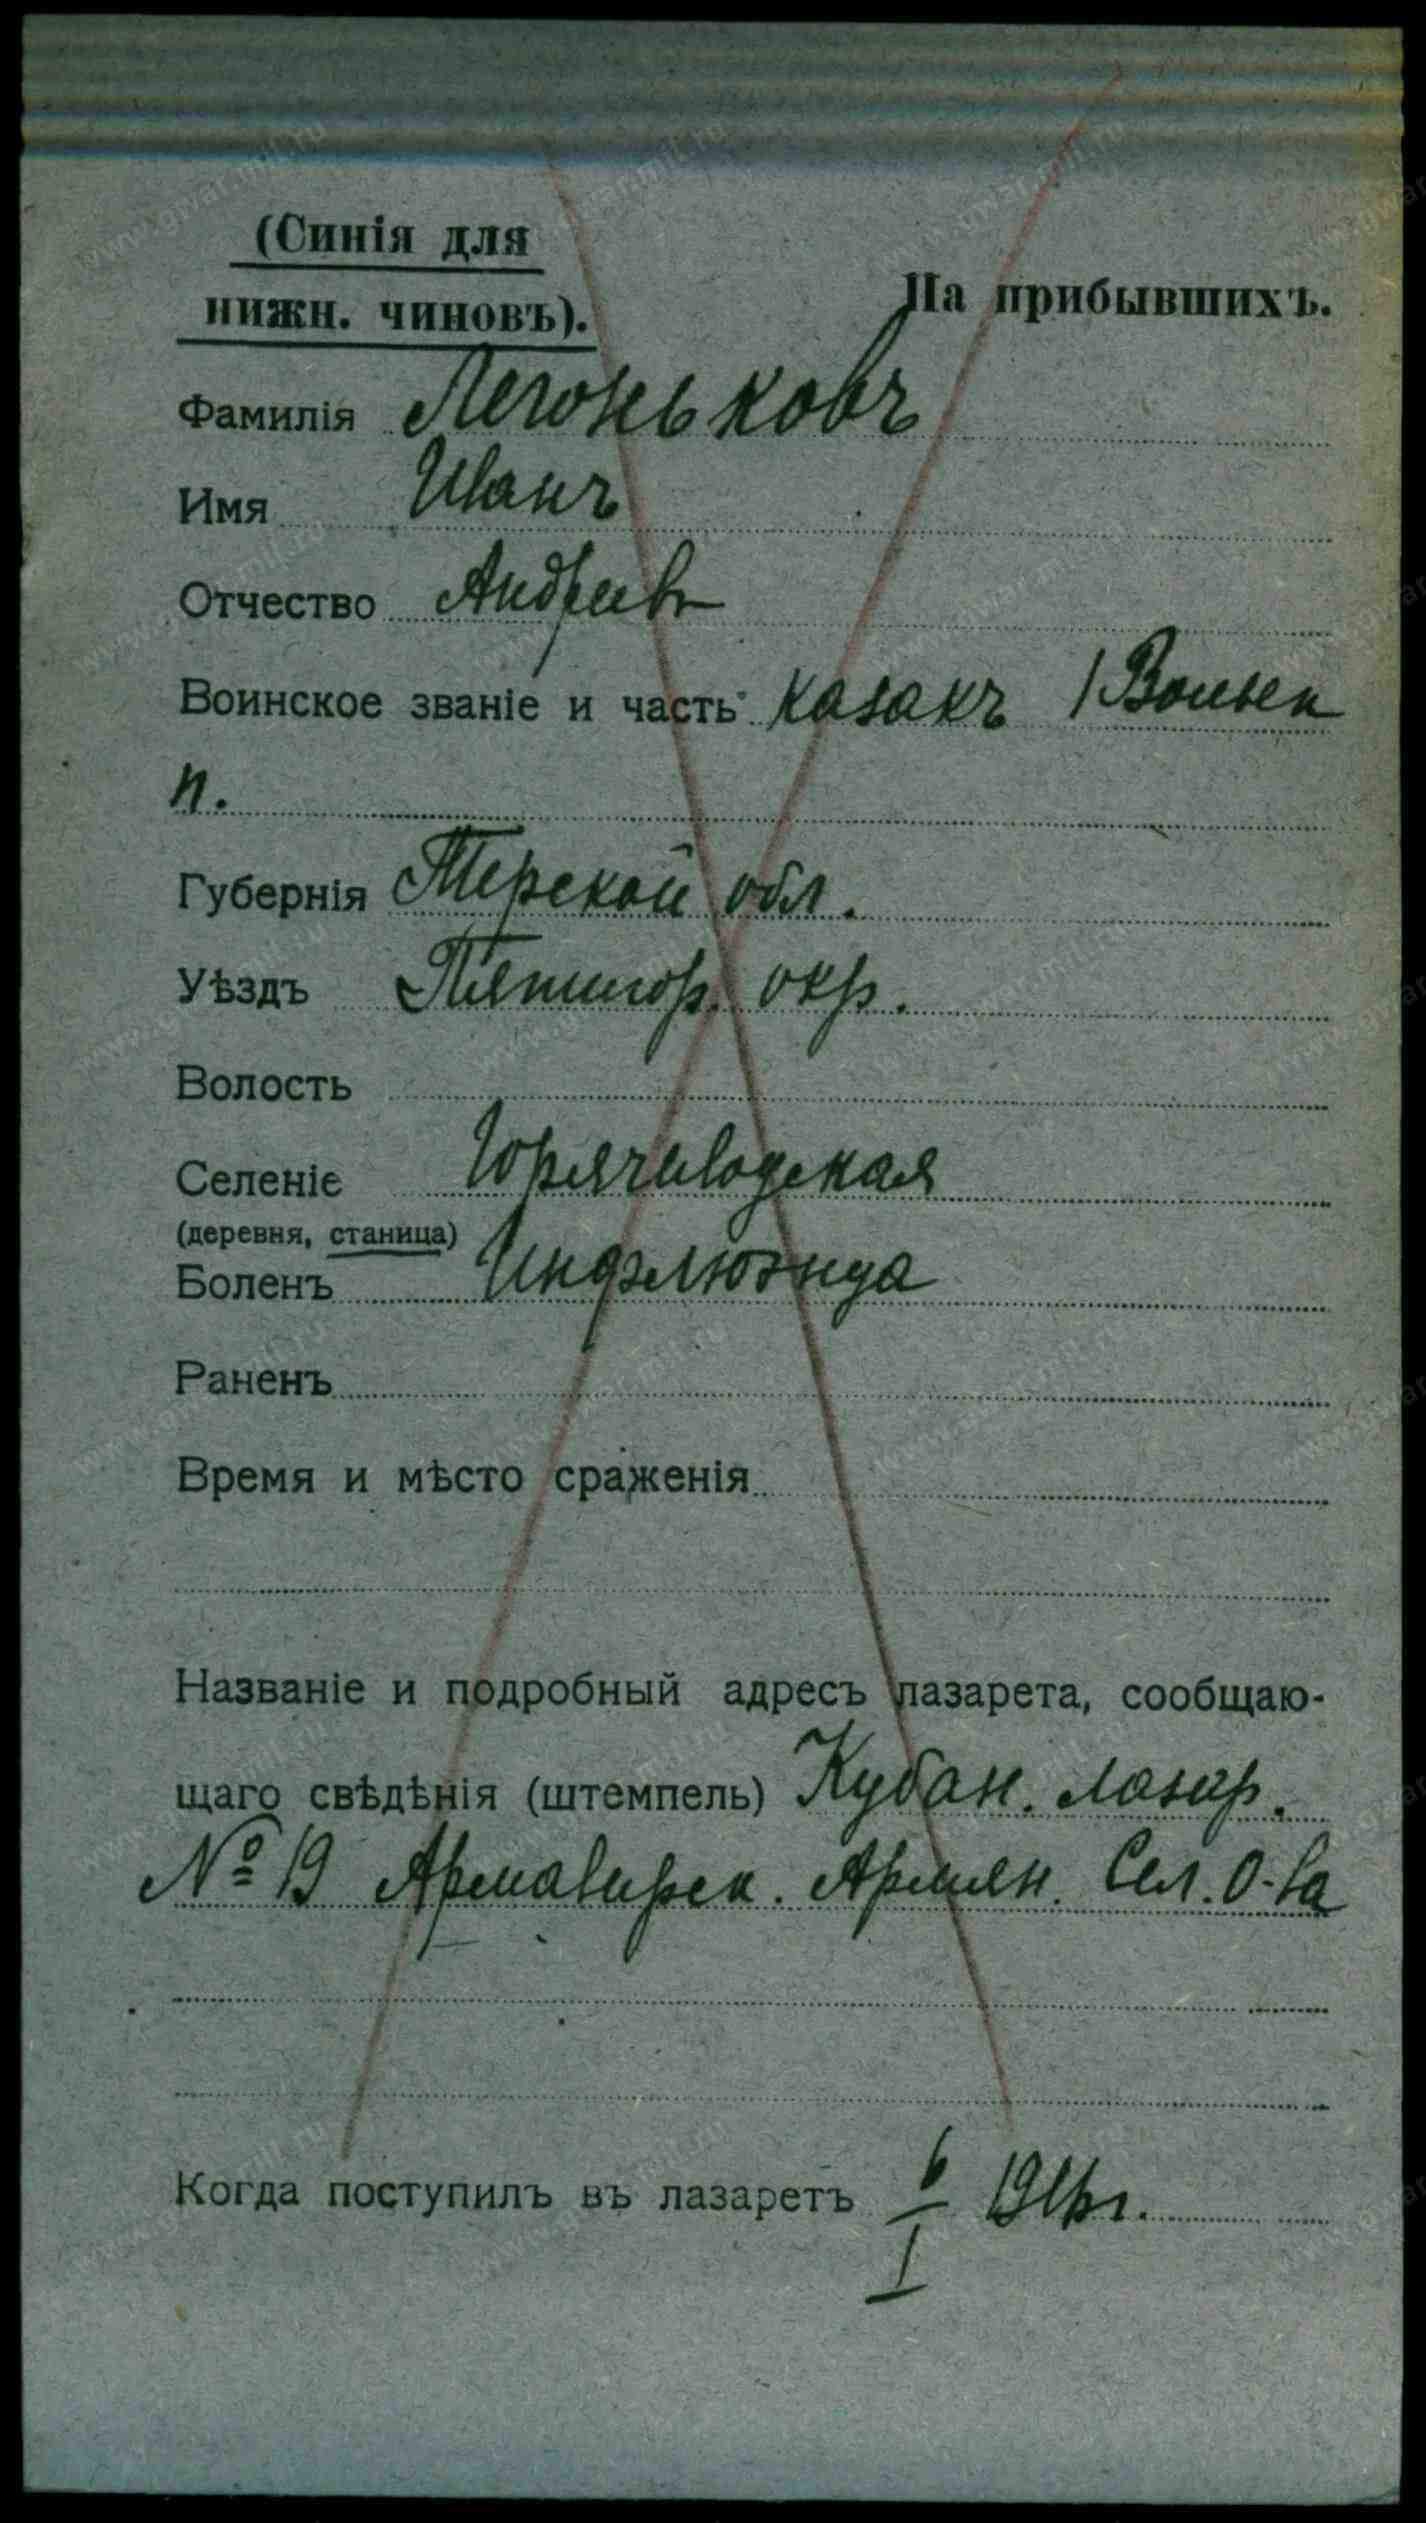 (Синія для
нижн. чиновъ).
На прибывшихъ.
Фамилія Легоньковъ
Имя Иванъ
Отчество Андреевъ
Воинское званіе и часть казакъ 1 Волгск
п.
Губернія Терской обл.
Уѣздъ Пятигор. окр.
Волость
Селеніе Горячеводская
(деревня, станица)
Боленъ Инфлюэнца
Раненъ
Время и мѣсто сраженія
Названіе и подробный адресъ лазарета, сообщаю-
щаго свѣдѣнія (штемпель) Кубан. лазар.
№ 19 Армавирск. Армян. Сел. О-ва
Когда поступилъ въ лазаретъ 6/I